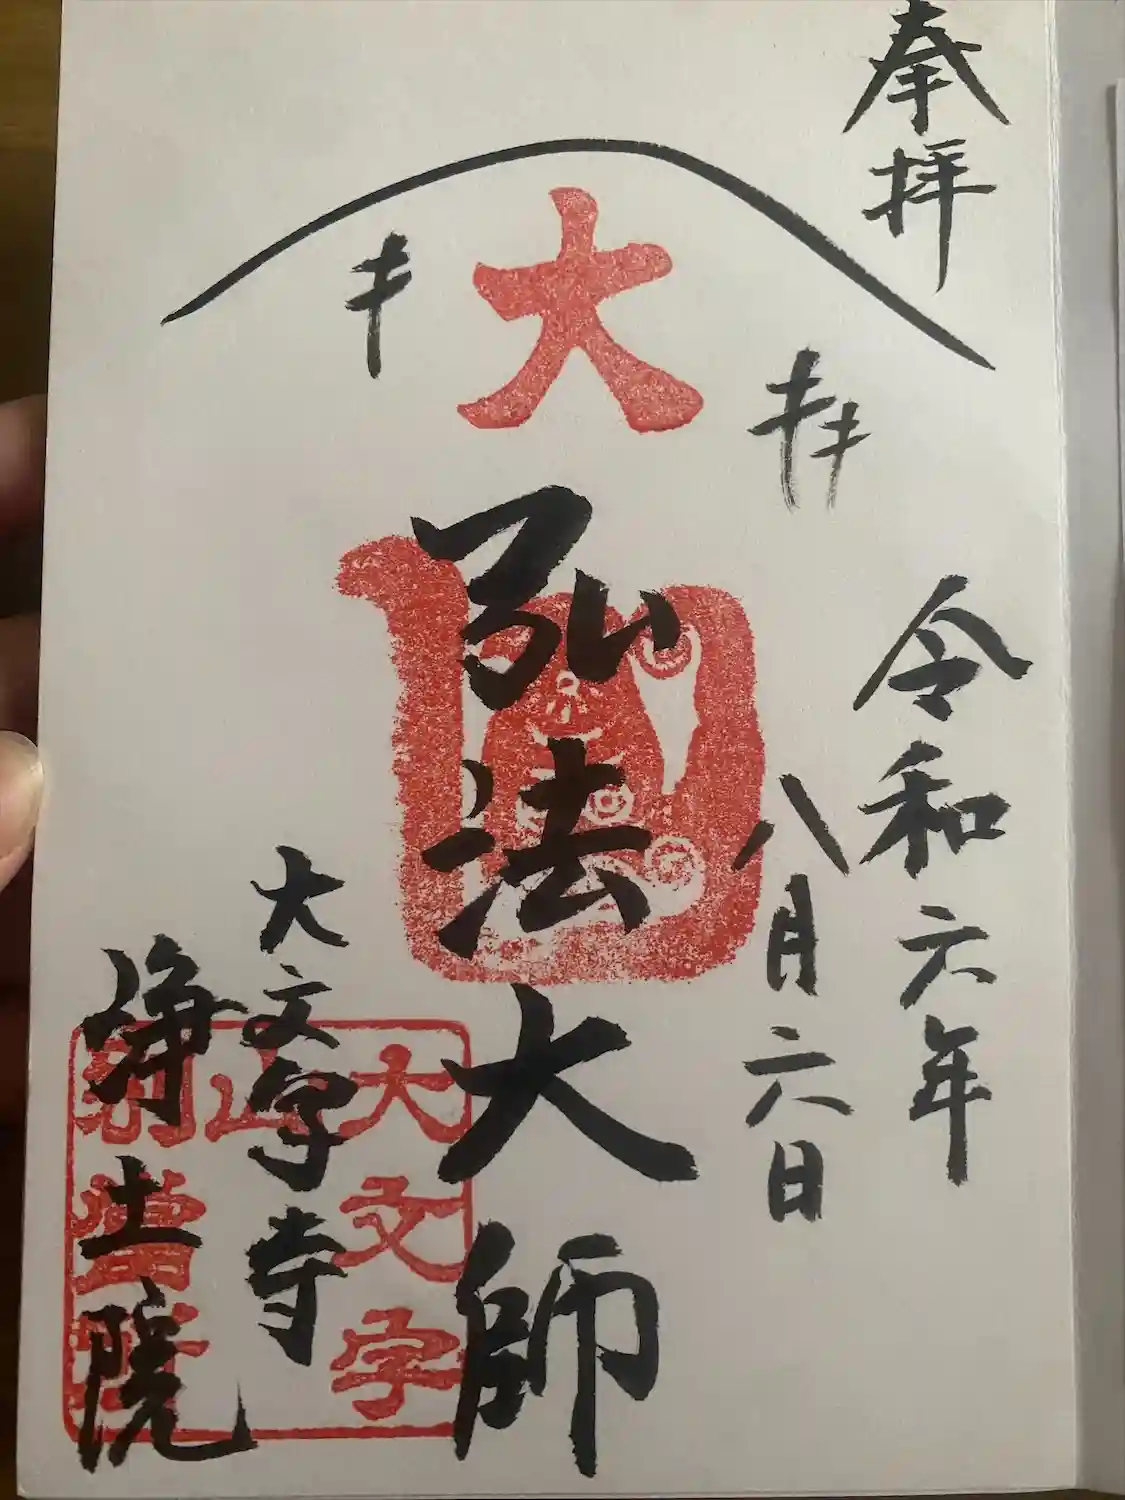 奉拝
令和六年
八月六日
大
弘法大師
大文字寺
浄土院
大文字
山